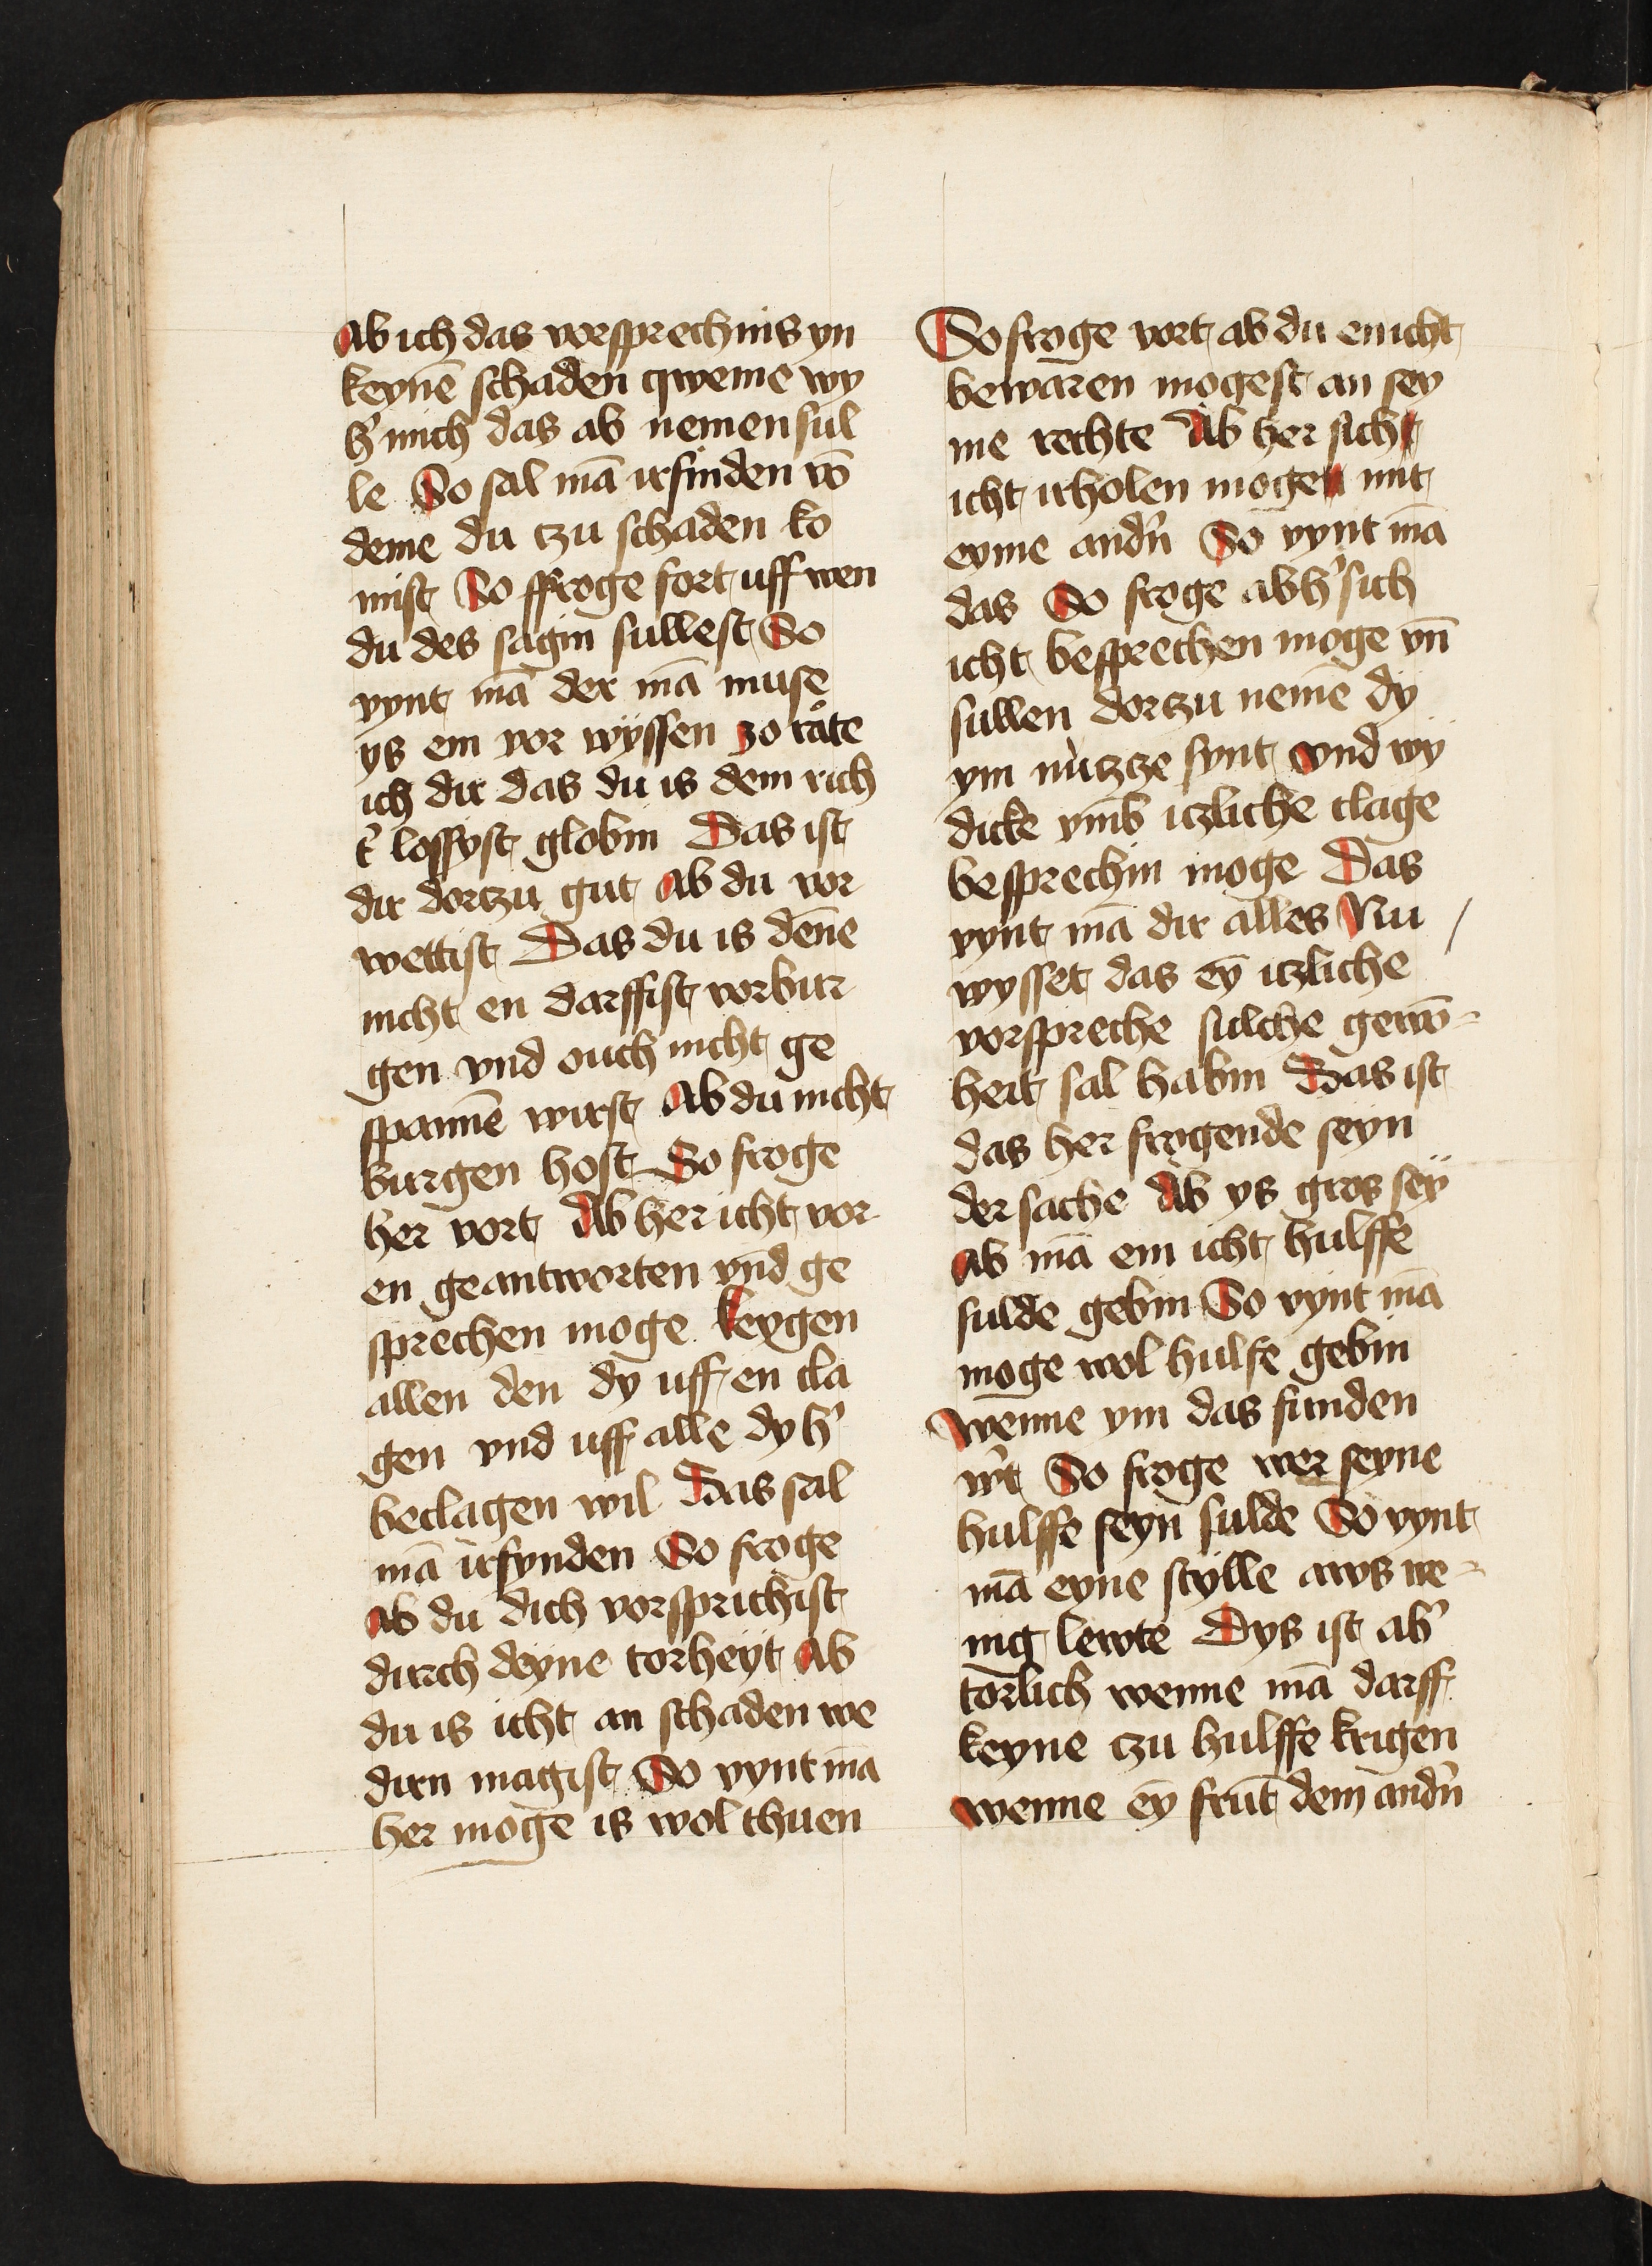 Ab ich das vorsprechnis yn
keynē schaden qweme wy
h' mich das ab nemen sul
le So sal mā irfinden vō
deme du czu schaden ko
mist So ffroge fort uff wen
du des sagin sullest So
vynt mā der mā muse
ys em vor wÿssen zo rate
ich dir das du is dem rich
t' lossyst globin Das ist
dir dorczu gut Ab du vor
wettist Das du is dēne
nicht en darffist vorbur
gen vnd ouch nicht ge
spannē wirst Ab du nicht
burgen host So froge
her vort Ab her icht vor
en geantworten vnd ge
sprechen moge keygen
allen den dy uff en cla
gen vnd uff alle dy h'
beclagen wil Das sal
mā irfynden So froge
Ab du dich vorsprichist
durch deyne torheyt Ab
du is icht an schaden we
dirn magist So vynt mā
her moge is wol thuen
So froge vort ab du en icht
bewaren mogest an sey
me rechte Ab her sich
icht irholen moge mit
eyme andn̄ So vynt mā
das So froge ab h' sich
icht besprechen moge vn̄
sullen dorczu nemē dy
ym nutzcze synt vnd wÿ
dicke vmb iczliche clage
besprechin moge Das
vynt mā dir alles Nu
wysset das eȳ iczliche
vorspreche sulche gewō-
heit sal habin Das ist
das her frogende seyn
der sache Ab ys gros seÿ
Ab mā em icht hulffe
sulde gebin So vynt mā
moge wol hulfe gebin
wenne ym das funden
w't So froge wer seyne
hulffe seyn sulde So vynt
mā eyne stylle aws we-
nig lewte Dys ist ab'
torlich wenne mā darff
keyne czu hulffe krigen
wenne eȳ frūt dem andn̄